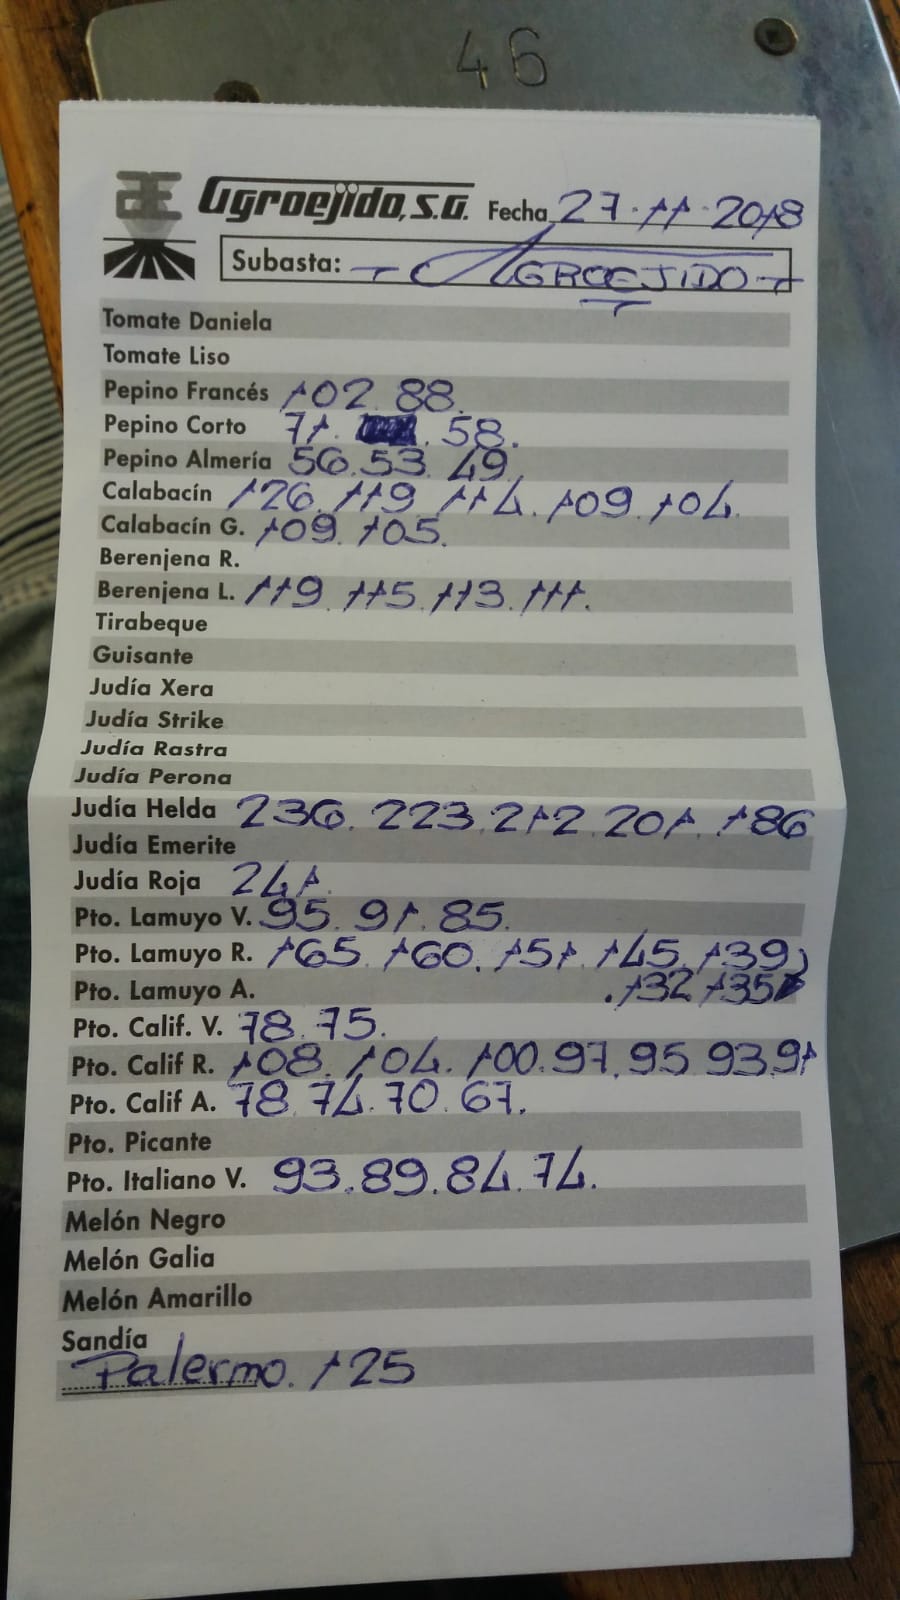 46
Agroejido, S.A. Fecha 27-11-2018
Subasta: AGROEJIDO
Tomate Daniela
Tomate Liso
Pepino Francés 102. 88.
Pepino Corto 71. . 58.
Pepino Almería 56. 53. 49
Calabacín 126. 119. 114. 109. 104.
Calabacín G. 109. 105.
Berenjena R.
Berenjena L. 119. 115. 113. 111.
Tirabeque
Guisante
Judía Xera
Judía Strike
Judía Rastra
Judía Perona
Judía Helda 236. 223. 212. 201. 186
Judía Emerite
Judía Roja 241.
Pto. Lamuyo V. 95. 91. 85.
Pto. Lamuyo R. 165. 160. 151. 145. 139
Pto. Lamuyo A. .132 135
Pto. Calif. V. 78. 75.
Pto. Calif R. 108. 104. 100. 97. 95. 93. 91
Pto. Calif A. 78. 74. 70. 67.
Pto. Picante
Pto. Italiano V. 93. 89. 84. 74.
Melón Negro
Melón Galia
Melón Amarillo
Sandía
Palermo. 125